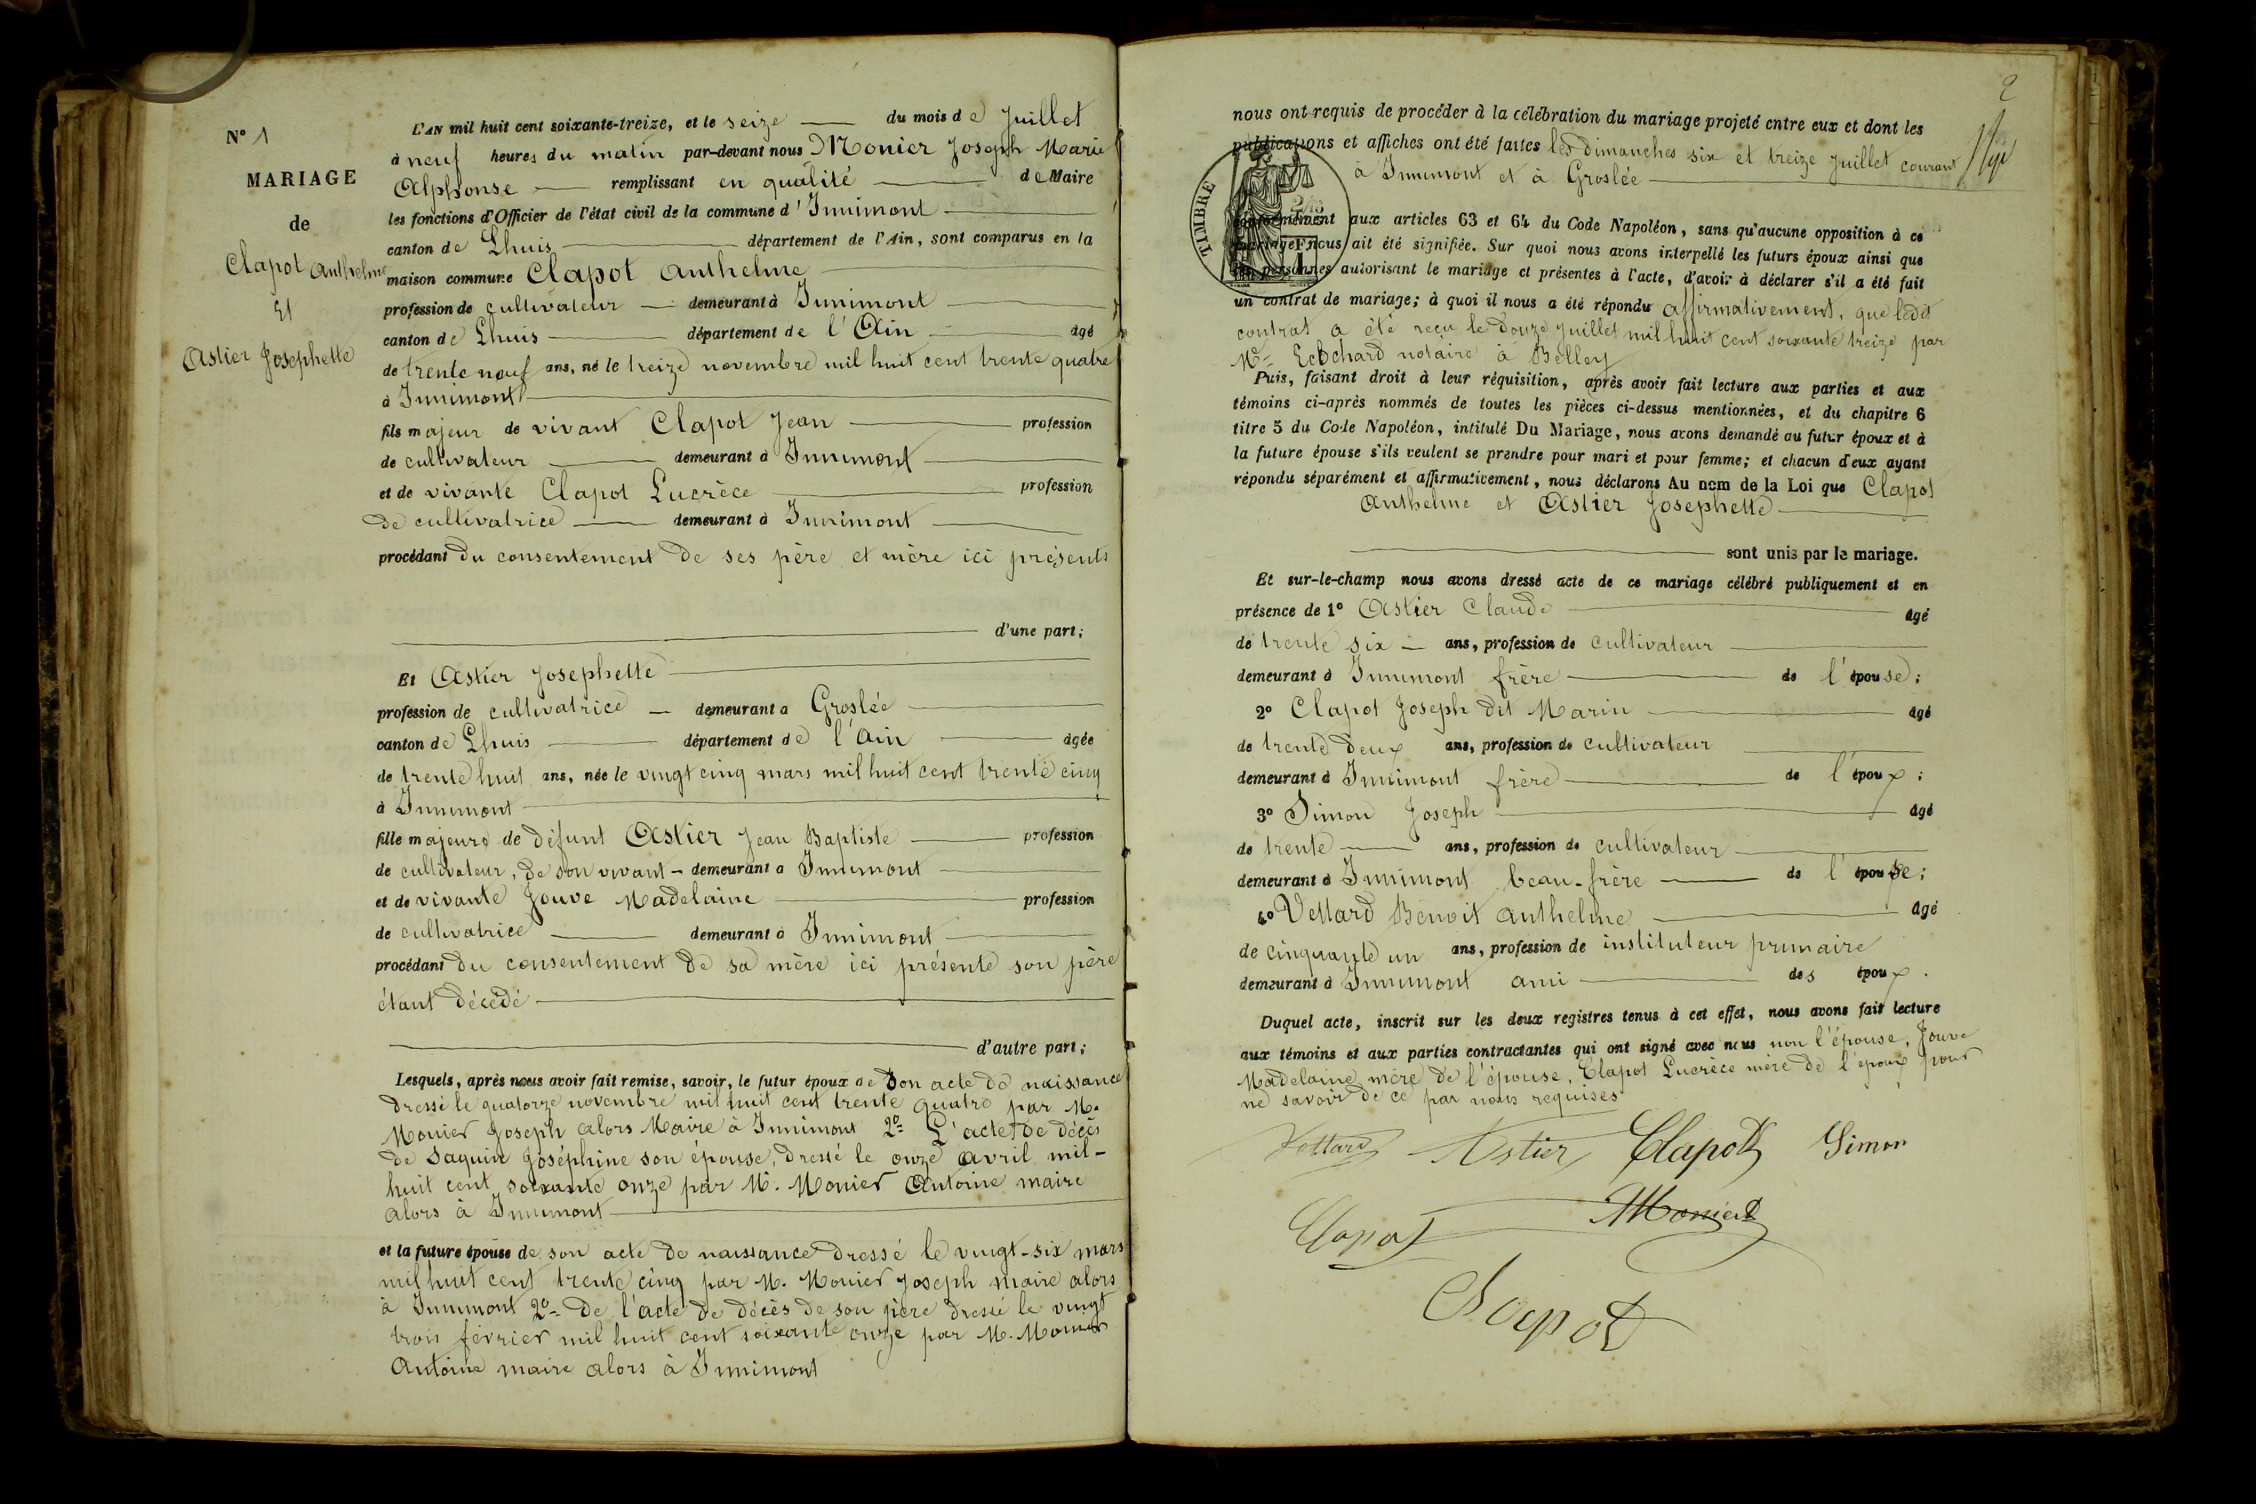 N° 1
MARIAGE
de
Clapot Anthelme
Et
Astier Josephette
L'AN mil huit cent soixante-treize, et le seize du mois de Juillet
à neuf heures du matin par-devant nous Monier Joseph Marie
Alphonse remplissant en qualité de Maire
les fonctions d'Officier de l'état civil de la commune d'Innimont
canton de Lhuis département de l'Ain, sont comparus en la
maison commune Clapot Anthelme
profession de cultivateur demeurant à Innimont
canton de Lhuis département de l'Ain âgé
de trente neuf ans, né le treize novembre mil huit cent trente quatre
à Innimont
fils majeur de vivant Clapot Jean profession
de cultivateur demeurant à Innimont
et de vivante Clapot Lucrèce profession
de cultivatrice demeurant à Innimont
procédant du consentement de ses père et mère ici présents
d'une part;
Et Astier Josephette
profession de cultivatrice demeurant a Groslée
canton de Lhuis département de l'Ain âgée
de trente huit ans, née le vingt cinq mars mil huit cent trente cinq
à Innimont
fille majeure de défunt Astier Jean Baptiste profession
de cultivateur, de son vivant demeurant a Innimont
et de vivante Jouve Madelaine profession
de cultivatrice demeurant à Innimont
procédant du consentement de sa mère ici présente son père
étant décédé
d'autre part;
Lesquels, après nous avoir fait remise, savoir, le futur époux de son acte de naissance
dressé le quatorze novembre mil huit cent trente quatre par M.
Monier Joseph alors Maire à Innimont 2° L'acte de décès
de Saquin Joséphine son épouse, dressé le onze avril mil-
huit cent soixante onze par M. Monier Antoine maire
alors à Innimont
et la future épouse de son acte de naissance dressé le vingt-six mars
mil huit cent trente cinq par M. Monier Joseph maire alors
à Innimont 2° de l'acte de décès de son père dressé le vingt
trois février mil huit cent soixante onze par M. Monier
Antoine maire alors à Innimont
2
nous ont requis de procéder à la célébration du mariage projeté entre eux et dont les
publications et affiches ont été faites les dimanches six et treize Juillet courant
à Innimont et à Groslée
TIMBRE
conformément aux articles 63 et 64 du Code Napoléon, sans qu'aucune opposition à ce
mariage nous ait été signifiée. Sur quoi nous avons interpellé les futurs époux ainsi que
les personnes autorisant le mariage et présentes à l'acte, d'avoir à déclarer s'il a été fait
un contrat de mariage; à quoi il nous a été répondu affirmativement, que ledit
contrat a été reçu le douze Juillet mil huit cent soixante treize par
Me notaire à Belley
Puis, faisant droit à leur réquisition, après avoir fait lecture aux parties et aux
témoins ci-après nommés de toutes les pièces ci-dessus mentionnées, et du chapitre 6
titre 5 du Code Napoléon, intitulé Du Mariage, nous avons demandé au futur époux et à
la future épouse s'ils veulent se prendre pour mari et pour femme; et chacun d'eux ayant
répondu séparément et affirmativement, nous déclarons Au nom de la Loi que Clapot
Anthelme et Astier Josephette
sont unis par le mariage.
Et sur-le-champ nous avons dressé acte de ce mariage célébré publiquement et en
présence de 1° Astier Claude âgé
de trente six ans, profession de cultivateur
demeurant à Innimont frère de l'épouse;
2° Clapot Joseph dit Marin âgé
de trente deux ans, profession de cultivateur
demeurant à Innimont frère de l'époux;
3° Simon Joseph âgé
de trente ans, profession de cultivateur
demeurant à Innimont beau-frère de l'épouse;
4° Vettard Benoit Anthelme âgé
de cinquante un ans, profession de instituteur primaire
demeurant à Innimont ami des époux.
Duquel acte, inscrit sur les deux registres tenus à cet effet, nous avons fait lecture
aux témoins et aux parties contractantes qui ont signé avec nous non l'épouse, Jouve
Madelaine mère de l'épouse, Clapot Lucrèce mère de l'époux pour
ne savoir de ce par nous requises
Vettard Astier Clapot Simon
Clapot AMonier
Clapot